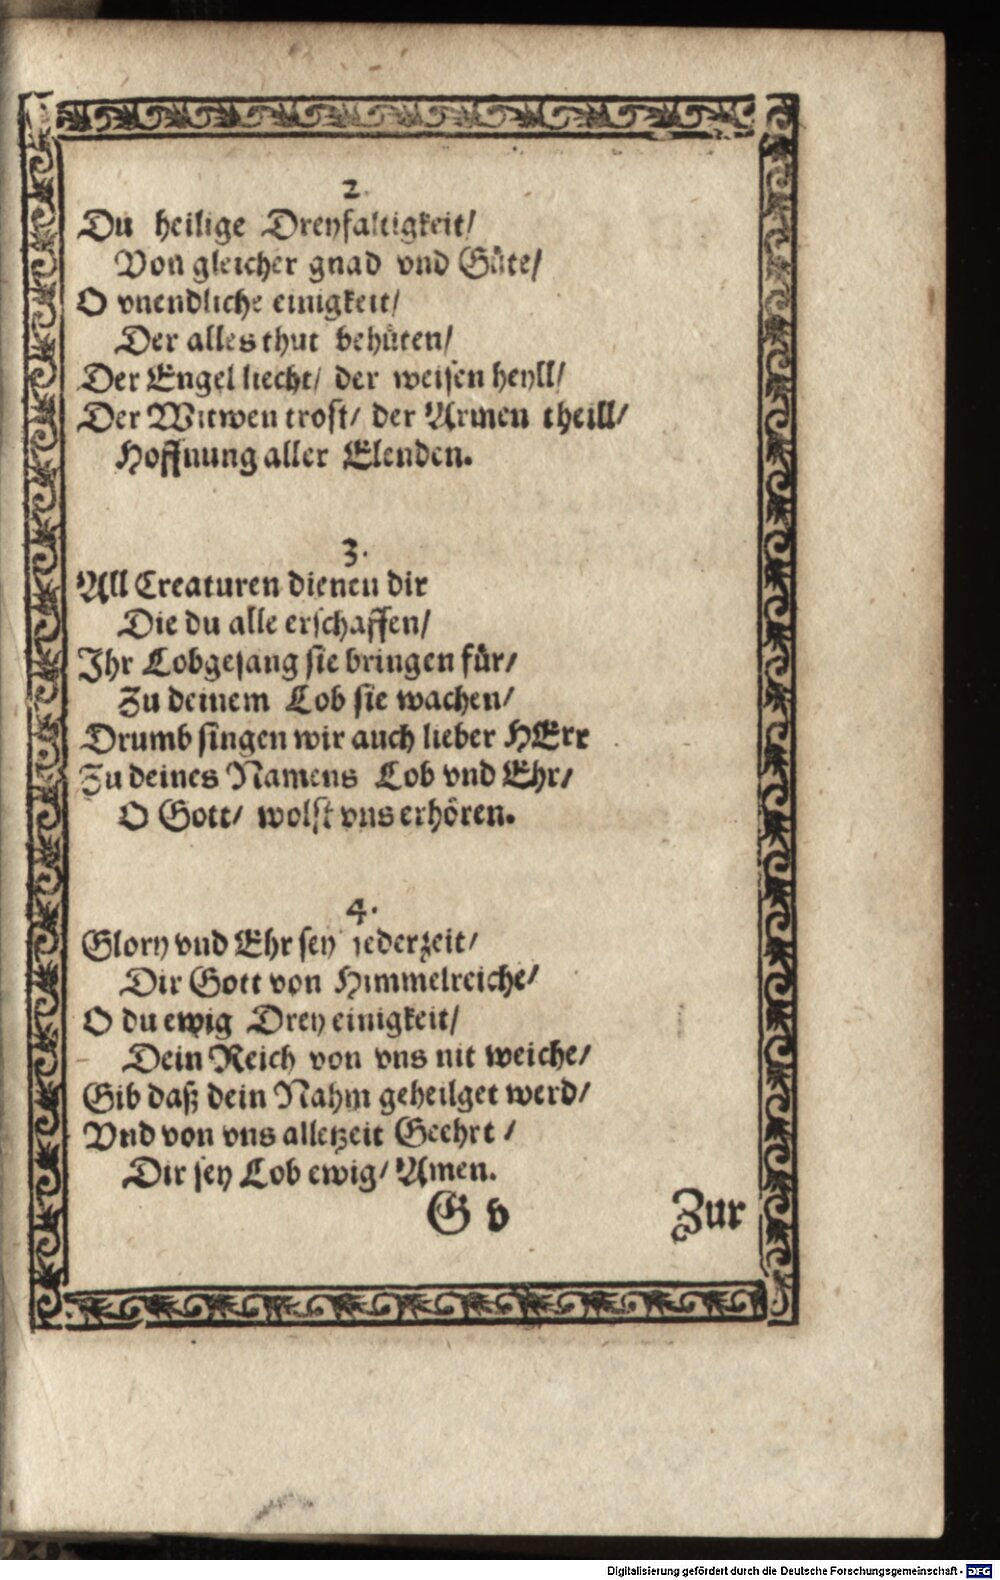 2.
Du heilige Dreyfaltigkeit/
Von gleicher gnad vnd Güte/
O vnendliche einigkeit/
Der alles thut behüten/
Der Engel liecht/ der weisen heyll/
Der Witwen trost/ der Armen theill/
Hoffnung aller Elenden.
3.
All Creaturen dienen dir
Die du alle erschaffen/
Ihr Lobgesang sie bringen für/
Zu deinem Lob sie wachen/
Drumb singen wir auch lieber HErr
Zu deines Namens Lob vnd Ehr/
O Gott/ wolst vns erhören.
4.
Glory vnd Ehr sey jederzeit/
Dir Gott von Himmelreiche/
O du ewig Dreyeinigkeit/
Dein Reich von vns nit weiche/
Gib daß dein Nahm geheilget werd/
Vnd von vns alletzeit Geehrt /
Dir sey Lob ewig/ Amen.
G v Zur
Digitalisierung gefördert durch die Deutsche Forschungsgemeinschaft - DFG